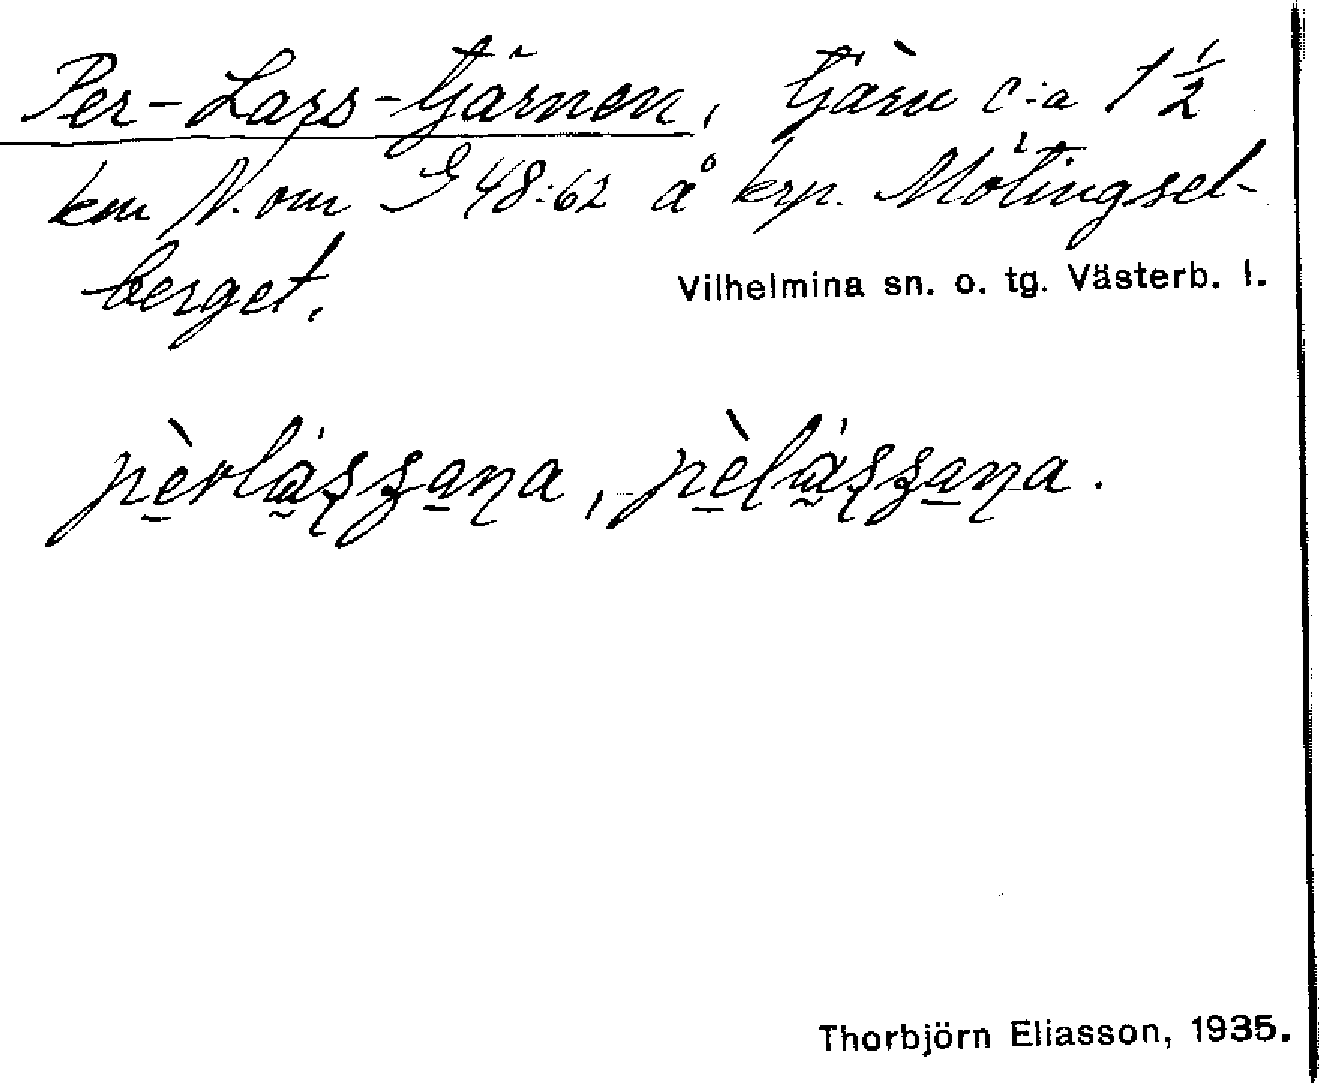 Per-Lars-tjärnen, tjärn c:a 1 1/2
km N. om G 48:62 å krp. Mötingsel-
berget.
Vilhelmina sn. o. tg. Västerb. l.
Thorbjörn Eliasson, 1935.